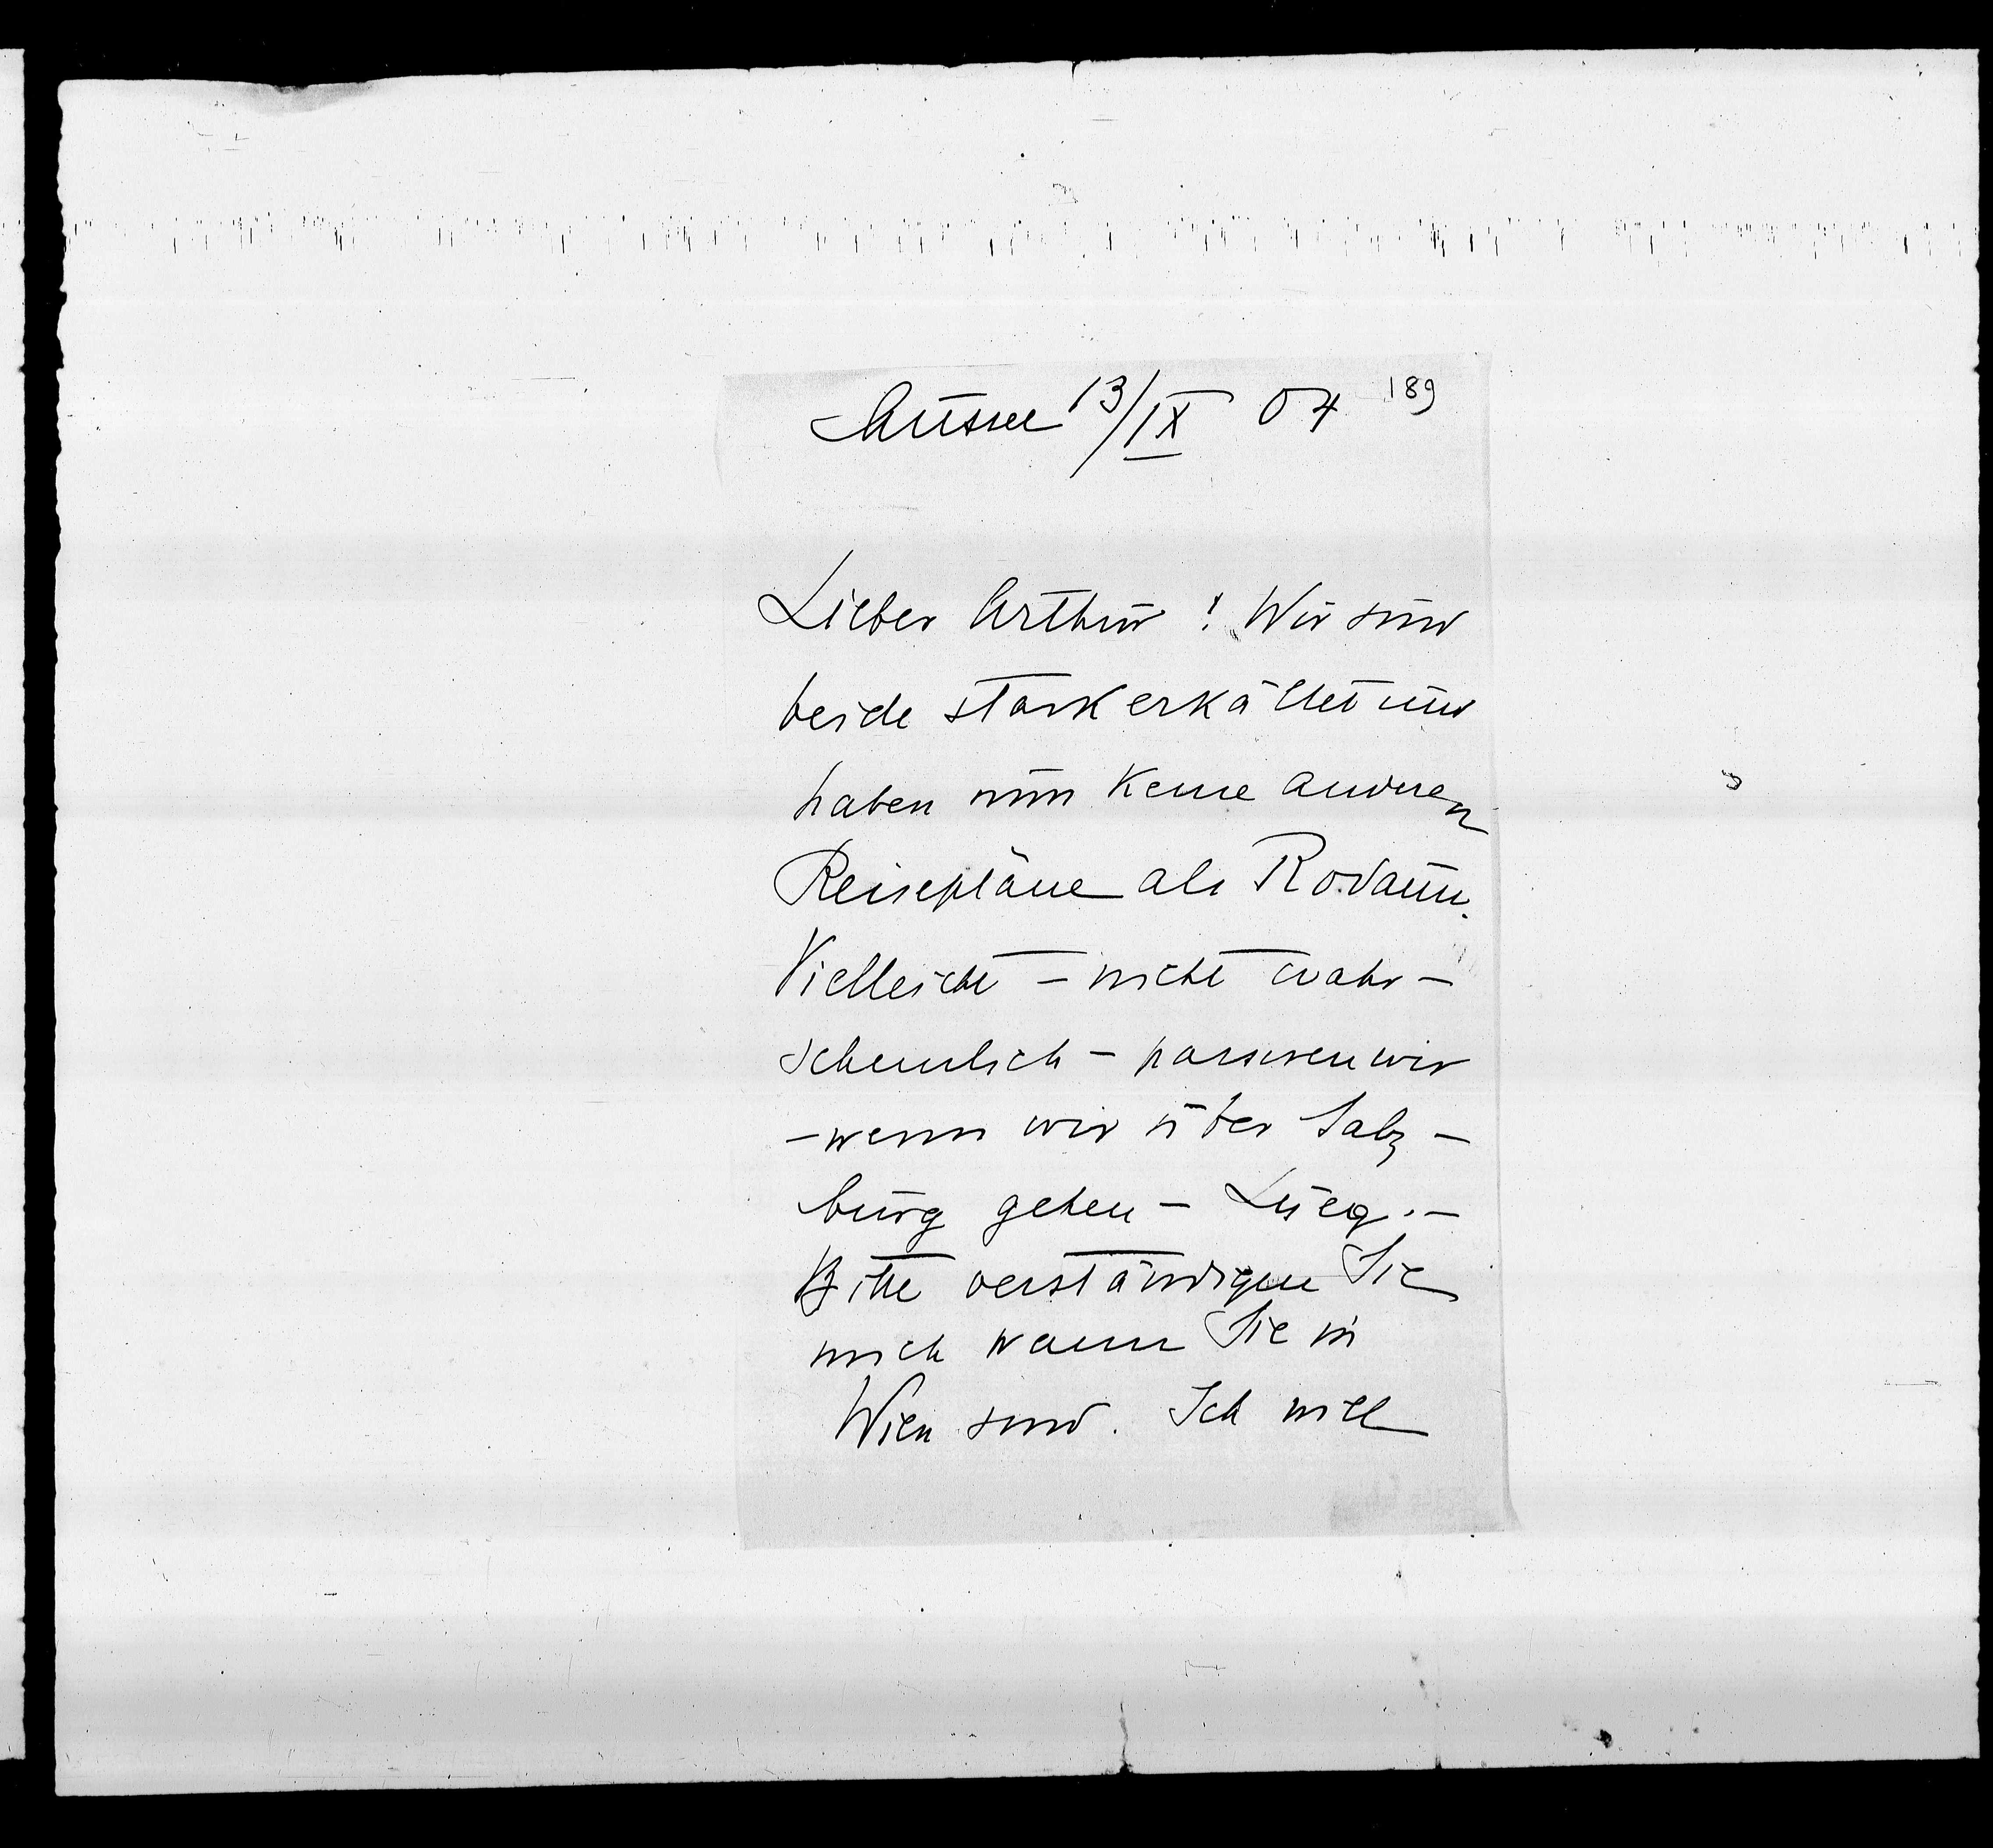 Aussee 13/IX 04 189
Lieber Arthur! Wir sind
beide stark erkältet und
haben nun keine anderen
Reisepläne als Rodaun.
Vielleicht – nicht wahr-
scheinlich – passiren wir
– wenn wir über Salz-
burg gehen – Lueg. –
Bitte verständigen Sie
mich wann Sie in
Wien sind. Ich will